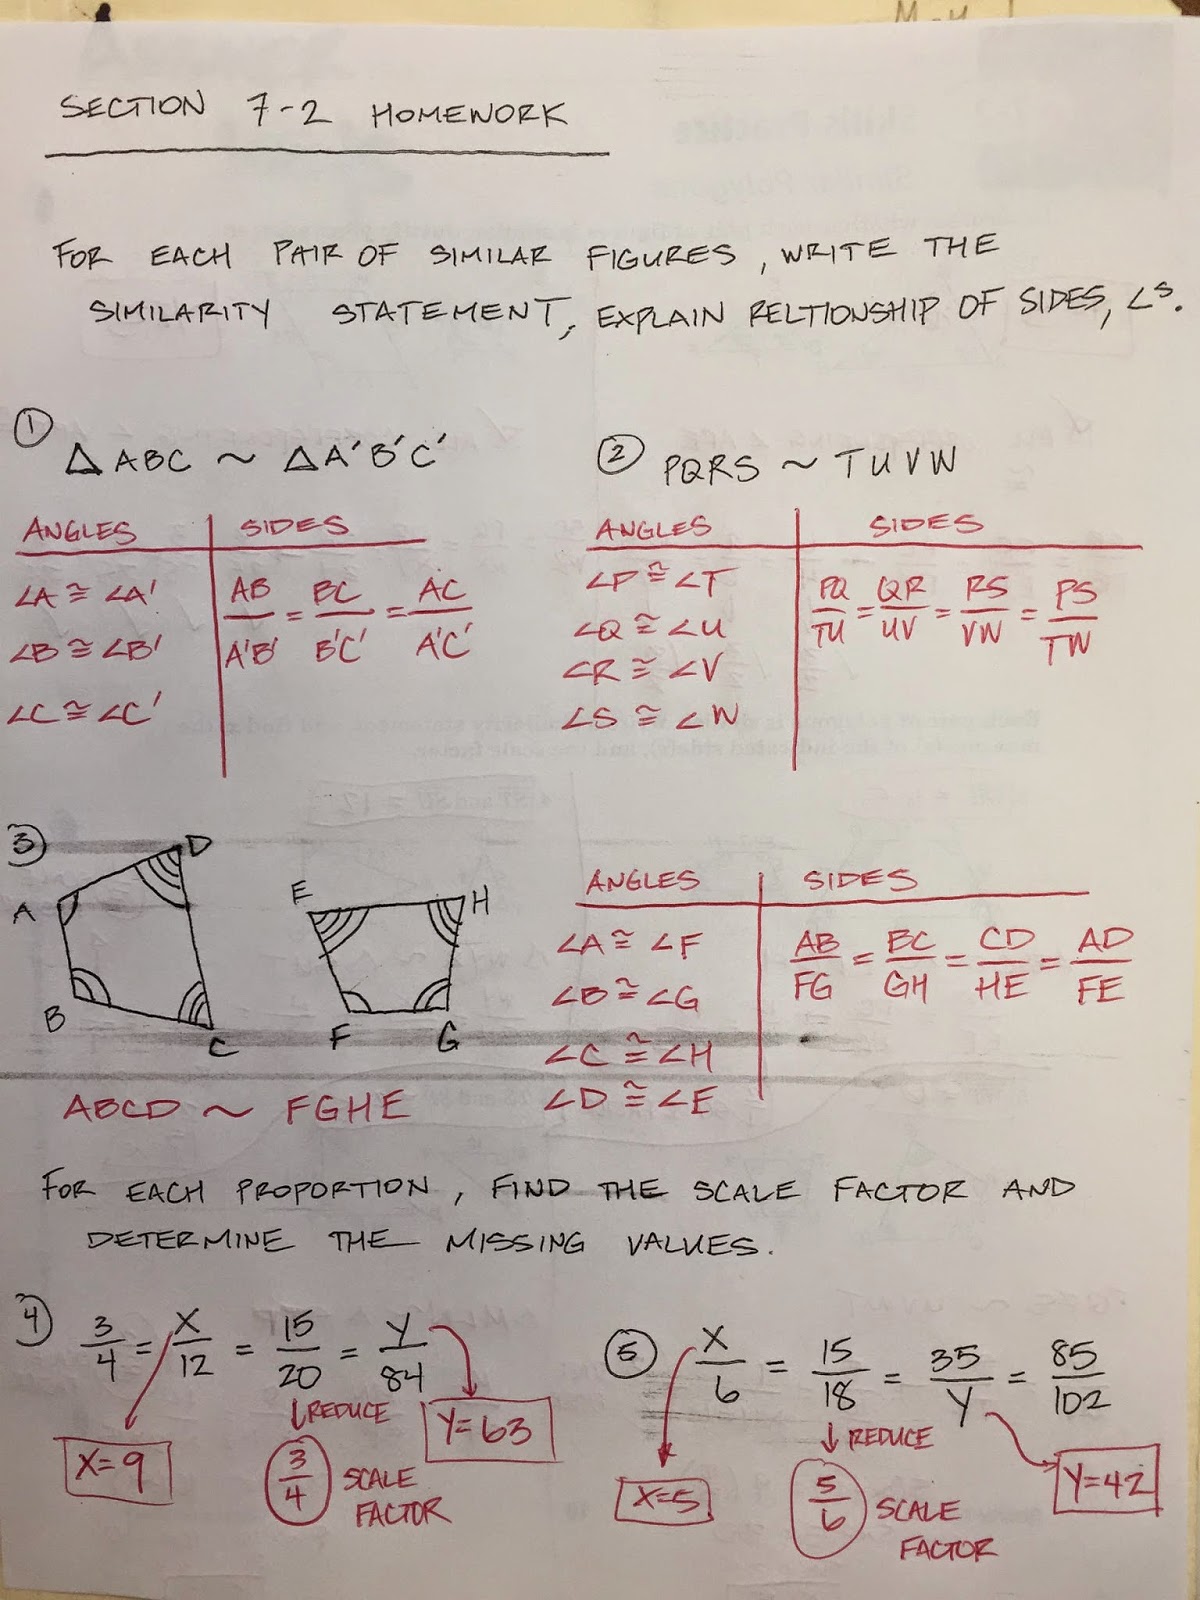 SECTION 7-2 HOMEWORK
FOR EACH PAIR OF SIMILAR FIGURES, WRITE THE
SIMILARITY STATEMENT, EXPLAIN RELTIONSHIP OF SIDES, ∠S.
① △ABC ~ △A'B'C'
ANGLES SIDES
∠A ≅ ∠A'
∠B ≅ ∠B'
∠C ≅ ∠C'
AB/A'B' = BC/B'C' = AC/A'C'
② PQRS ~ TUVW
ANGLES SIDES
∠P ≅ ∠T
∠Q ≅ ∠U
∠R ≅ ∠V
∠S ≅ ∠W
PQ/TU = QR/UV = RS/VW = PS/TW
③
D
A
B
C
E H
F G
ABCD ~ FGHE
ANGLES SIDES
∠A ≅ ∠F
∠B ≅ ∠G
∠C ≅ ∠H
∠D ≅ ∠E
AB/FG = BC/GH = CD/HE = AD/FE
FOR EACH PROPORTION, FIND THE SCALE FACTOR AND
DETERMINE THE MISSING VALUES.
④ 3/4 = X/12 = 15/20 = Y/84
↓ REDUCE
X=9
3/4 SCALE
FACTOR
Y=63
⑤ X/6 = 15/18 = 35/Y = 85/102
↓ REDUCE
X=5
5/6 SCALE
FACTOR
Y=42